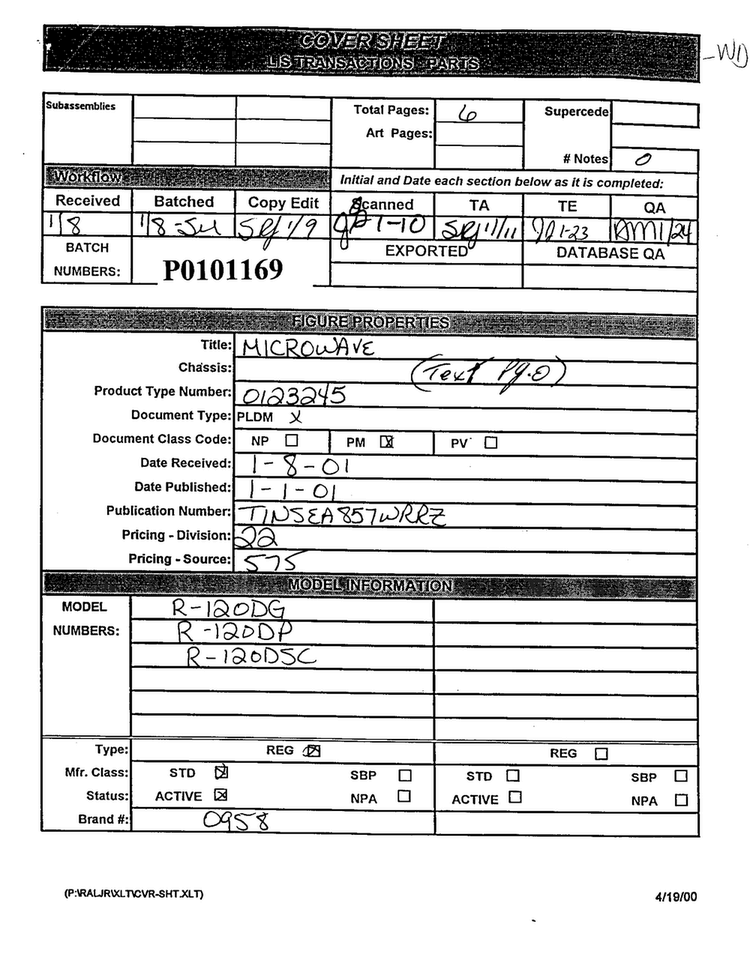 COVER SHEET
LIS TRANSACTIONS - PARTS
-WD
Subassemblies
Total Pages: 6
Supercede
Art Pages:
# Notes 0
Workflow
Initial and Date each section below as it is completed:
Received Batched Copy Edit Scanned TA TE QA
1/8 1/8 - SRJ 1/9 1-10 SRJ 1/11 1-23 AM 1/24
BATCH NUMBERS: P0101169
EXPORTED DATABASE QA
FIGURE PROPERTIES
Title: MICROWAVE
Chassis: (Text Pg. 0)
Product Type Number: 0123245
Document Type: PLDM X
Document Class Code: NP PM X PV
Date Received: 1-8-01
Date Published: 1-1-01
Publication Number: TINSEA857WRRZ
Pricing - Division: 22
Pricing - Source: 575
MODEL INFORMATION
MODEL NUMBERS: R-120DG
R-120DP
R-120DSC
Type: REG X REG
Mfr. Class: STD X SBP STD SBP
Status: ACTIVE X NPA ACTIVE NPA
Brand #: 0958
(P:\RALJR\XLT\CVR-SHT.XLT) 4/19/00